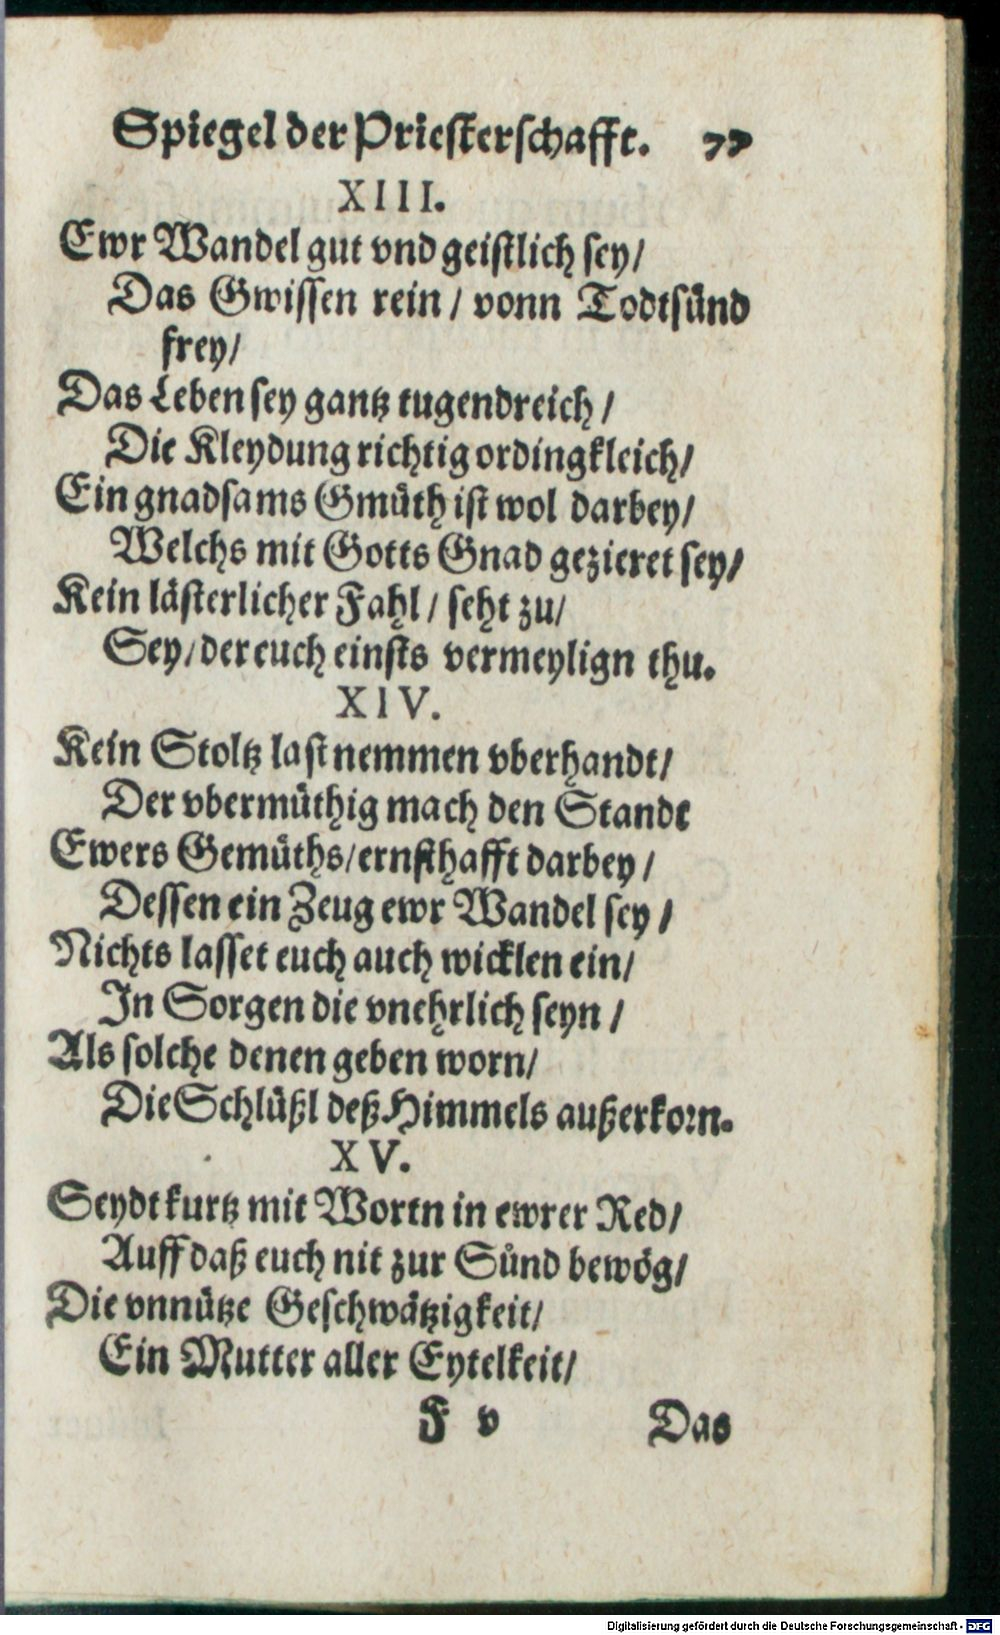 Spiegel der Priesterschafft. 77
XIII.
Ewr Wandel gut vnd geistlich sey/
Das Gwissen rein / vonn Todtsünd
frey/
Das Leben sey gantz tugendreich /
Die Kleydung richtig ordingkleich/
Ein gnadsams Gmüth ist wol darbey/
Welchs mit Gotts Gnad gezieret sey/
Kein lästerlicher Fahl / seht zu/
Sey/ der euch einsts vermeylign thu.
XIV.
Kein Stoltz last nemmen vberhandt/
Der vbermüthig mach den Standt
Ewers Gemüths/ernsthafft darbey /
Dessen ein Zeug ewr Wandel sey /
Nichts lasset euch auch wicklen ein/
In Sorgen die vnehrlich seyn /
Als solche denen geben worn/
Die Schlüßl deß Himmels außerkorn.
XV.
Seydt kurtz mit Wortn in ewrer Red/
Auff daß euch nit zur Sünd bewög/
Die vnnütze Geschwätzigkeit/
Ein Mutter aller Eytelkeit/
F v Das
Digitalisierung gefördert durch die Deutsche Forschungsgemeinschaft - DFG